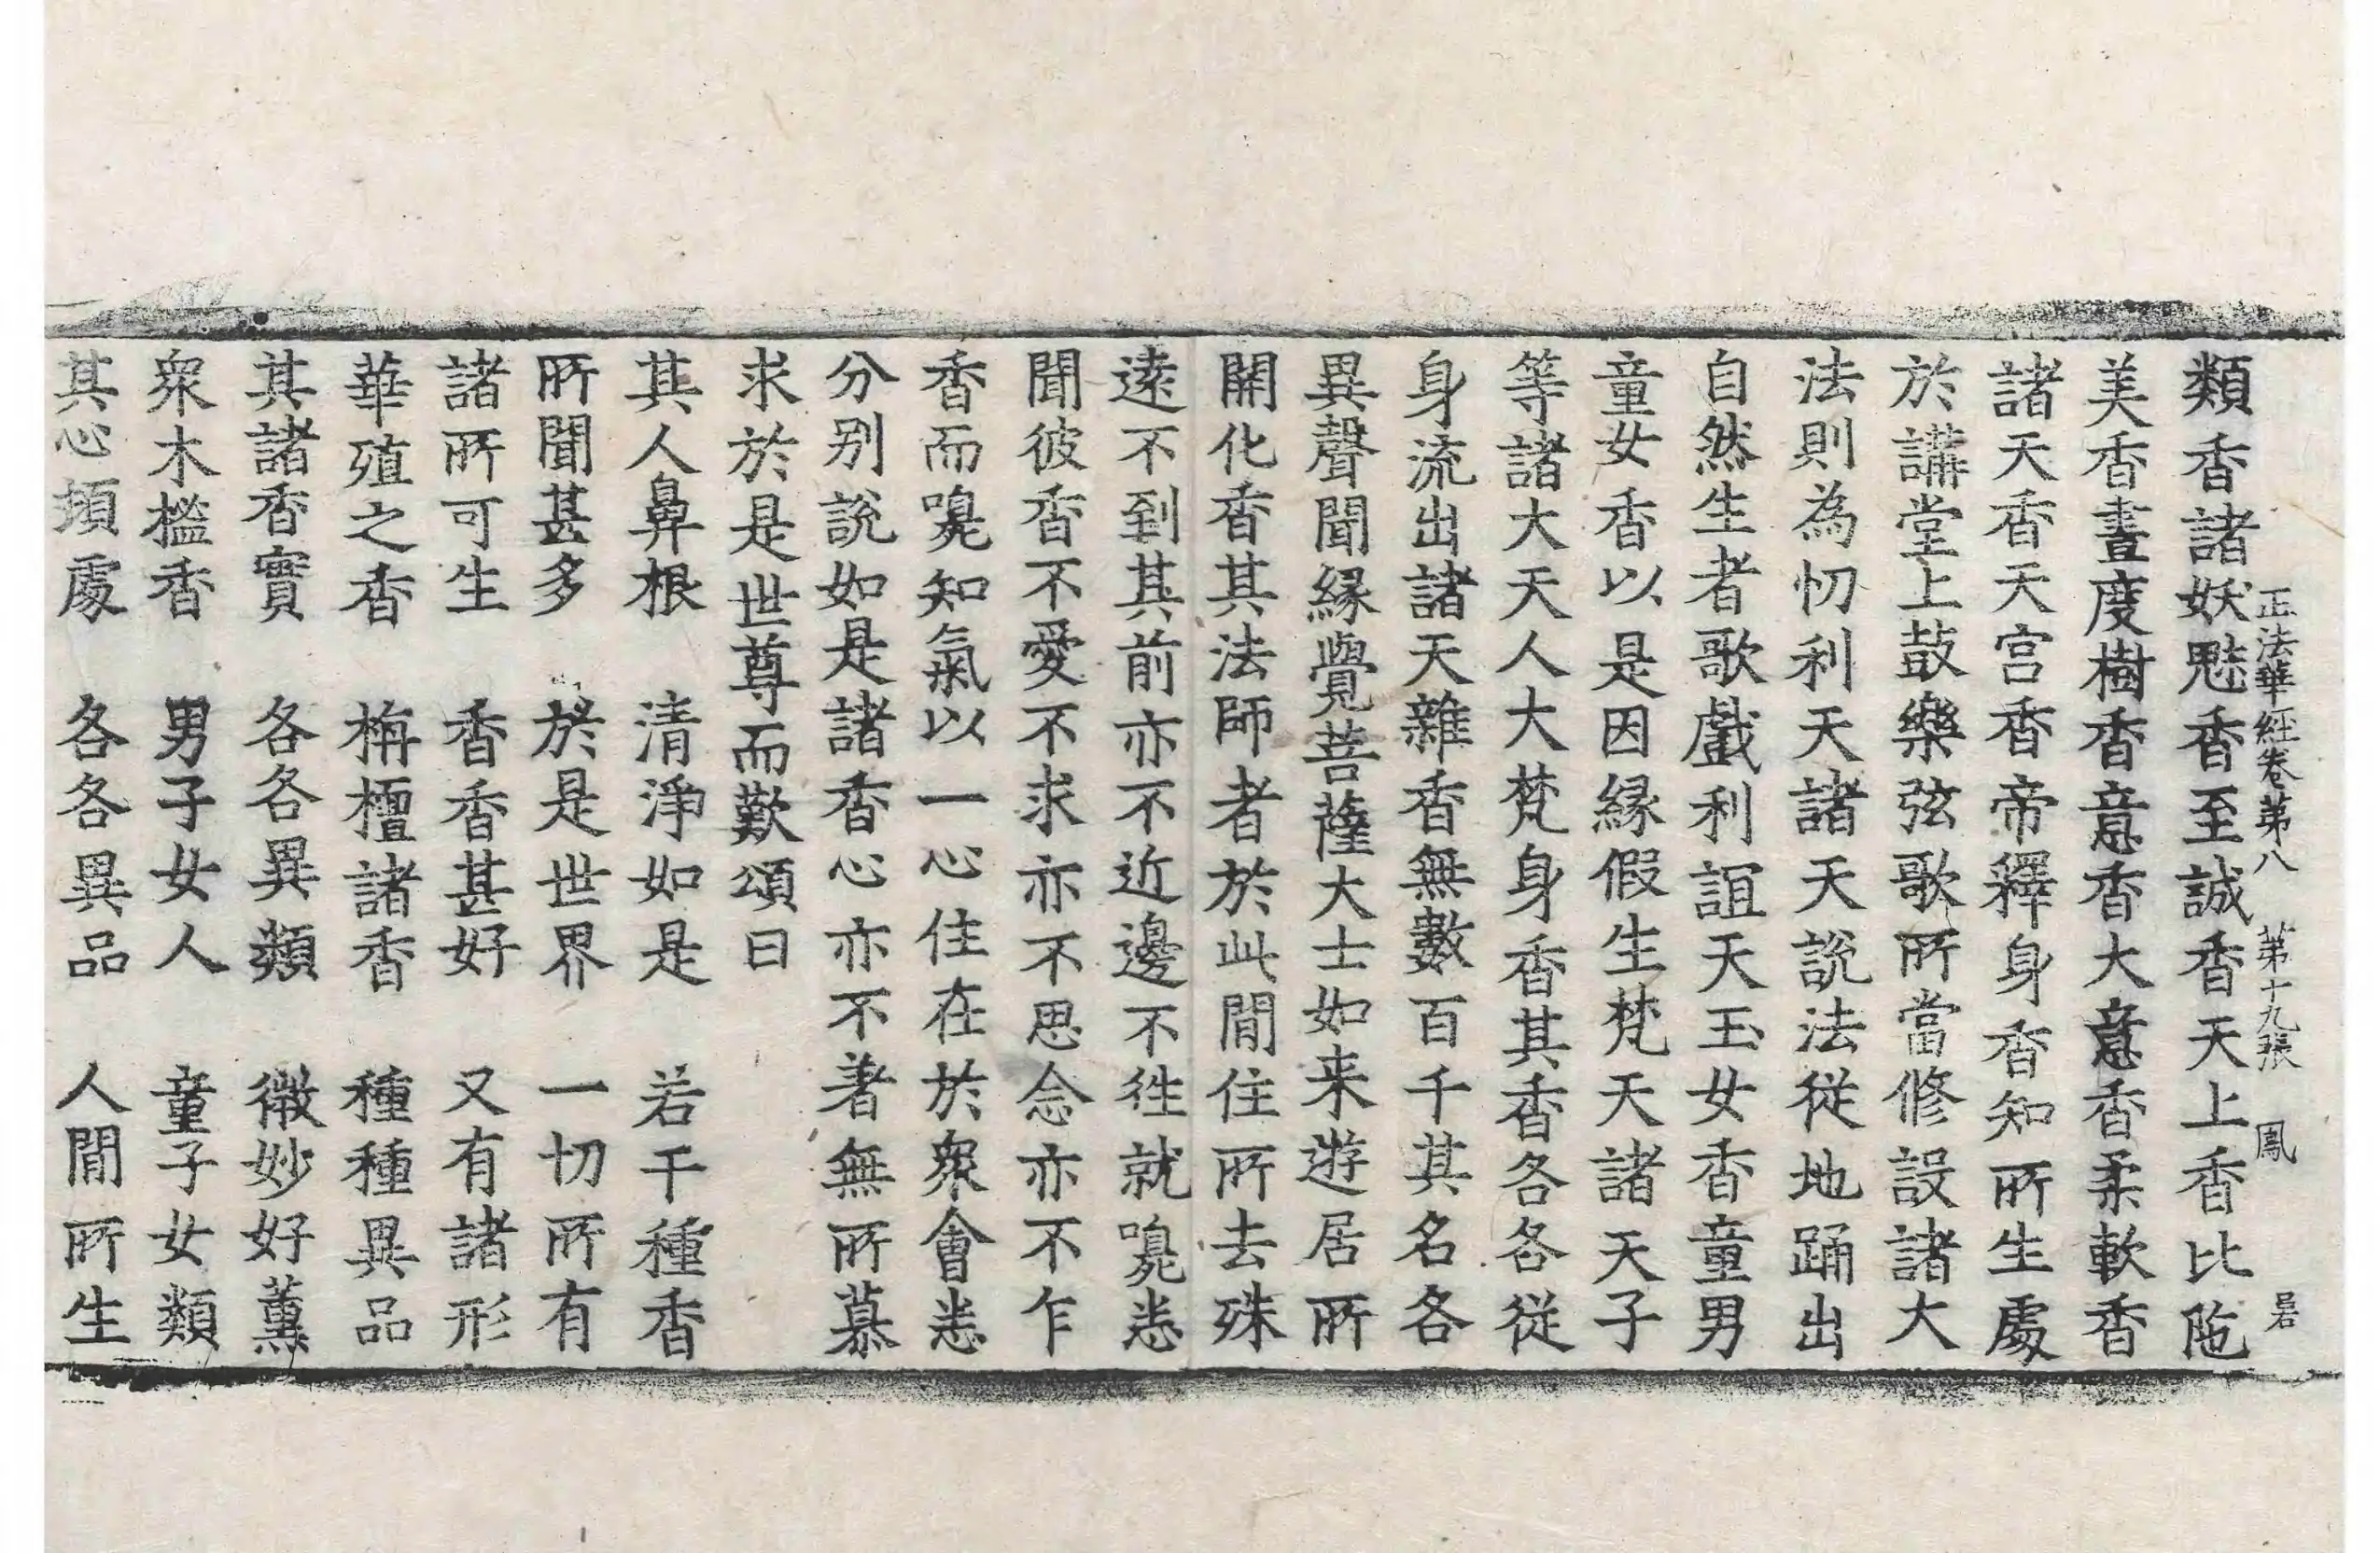 正法華經卷第八 第十九張 鳳
類香諸妖魅香至誠香天上香比陁
美香晝度樹香意香大意香柔軟香
諸天香天宮香帝釋身香知所生處
於講堂上鼓樂弦歌所當修設諸大
法則為忉利天諸天說法從地踊出
自然生者歌戲利誼天玉女香童男
童女香以是因緣假生梵天諸天子
等諸大天人大梵身香其香各各從
身流出諸天雜香無數百千其名各
異聲聞緣覺菩薩大士如来遊居所
開化香其法師者於此閒住所去殊
遠不到其前亦不近邊不徃就嗅悉
聞彼香不愛不求亦不思念亦不乍
香而嗅知氣以一心住在於衆會恙
分別說如是諸香心亦不著無所慕
求於是世尊而歎頌曰
其人鼻根 清淨如是 若干種香
所聞甚多 於是世界 一切所有
諸所可生 香香甚好 又有諸形
華殖之香 栴檀諸香 種種異品
其諸香實 各各異類 微妙好薰
衆木檻香 男子女人 童子女類
其心頊處 各各異品 人閒所生